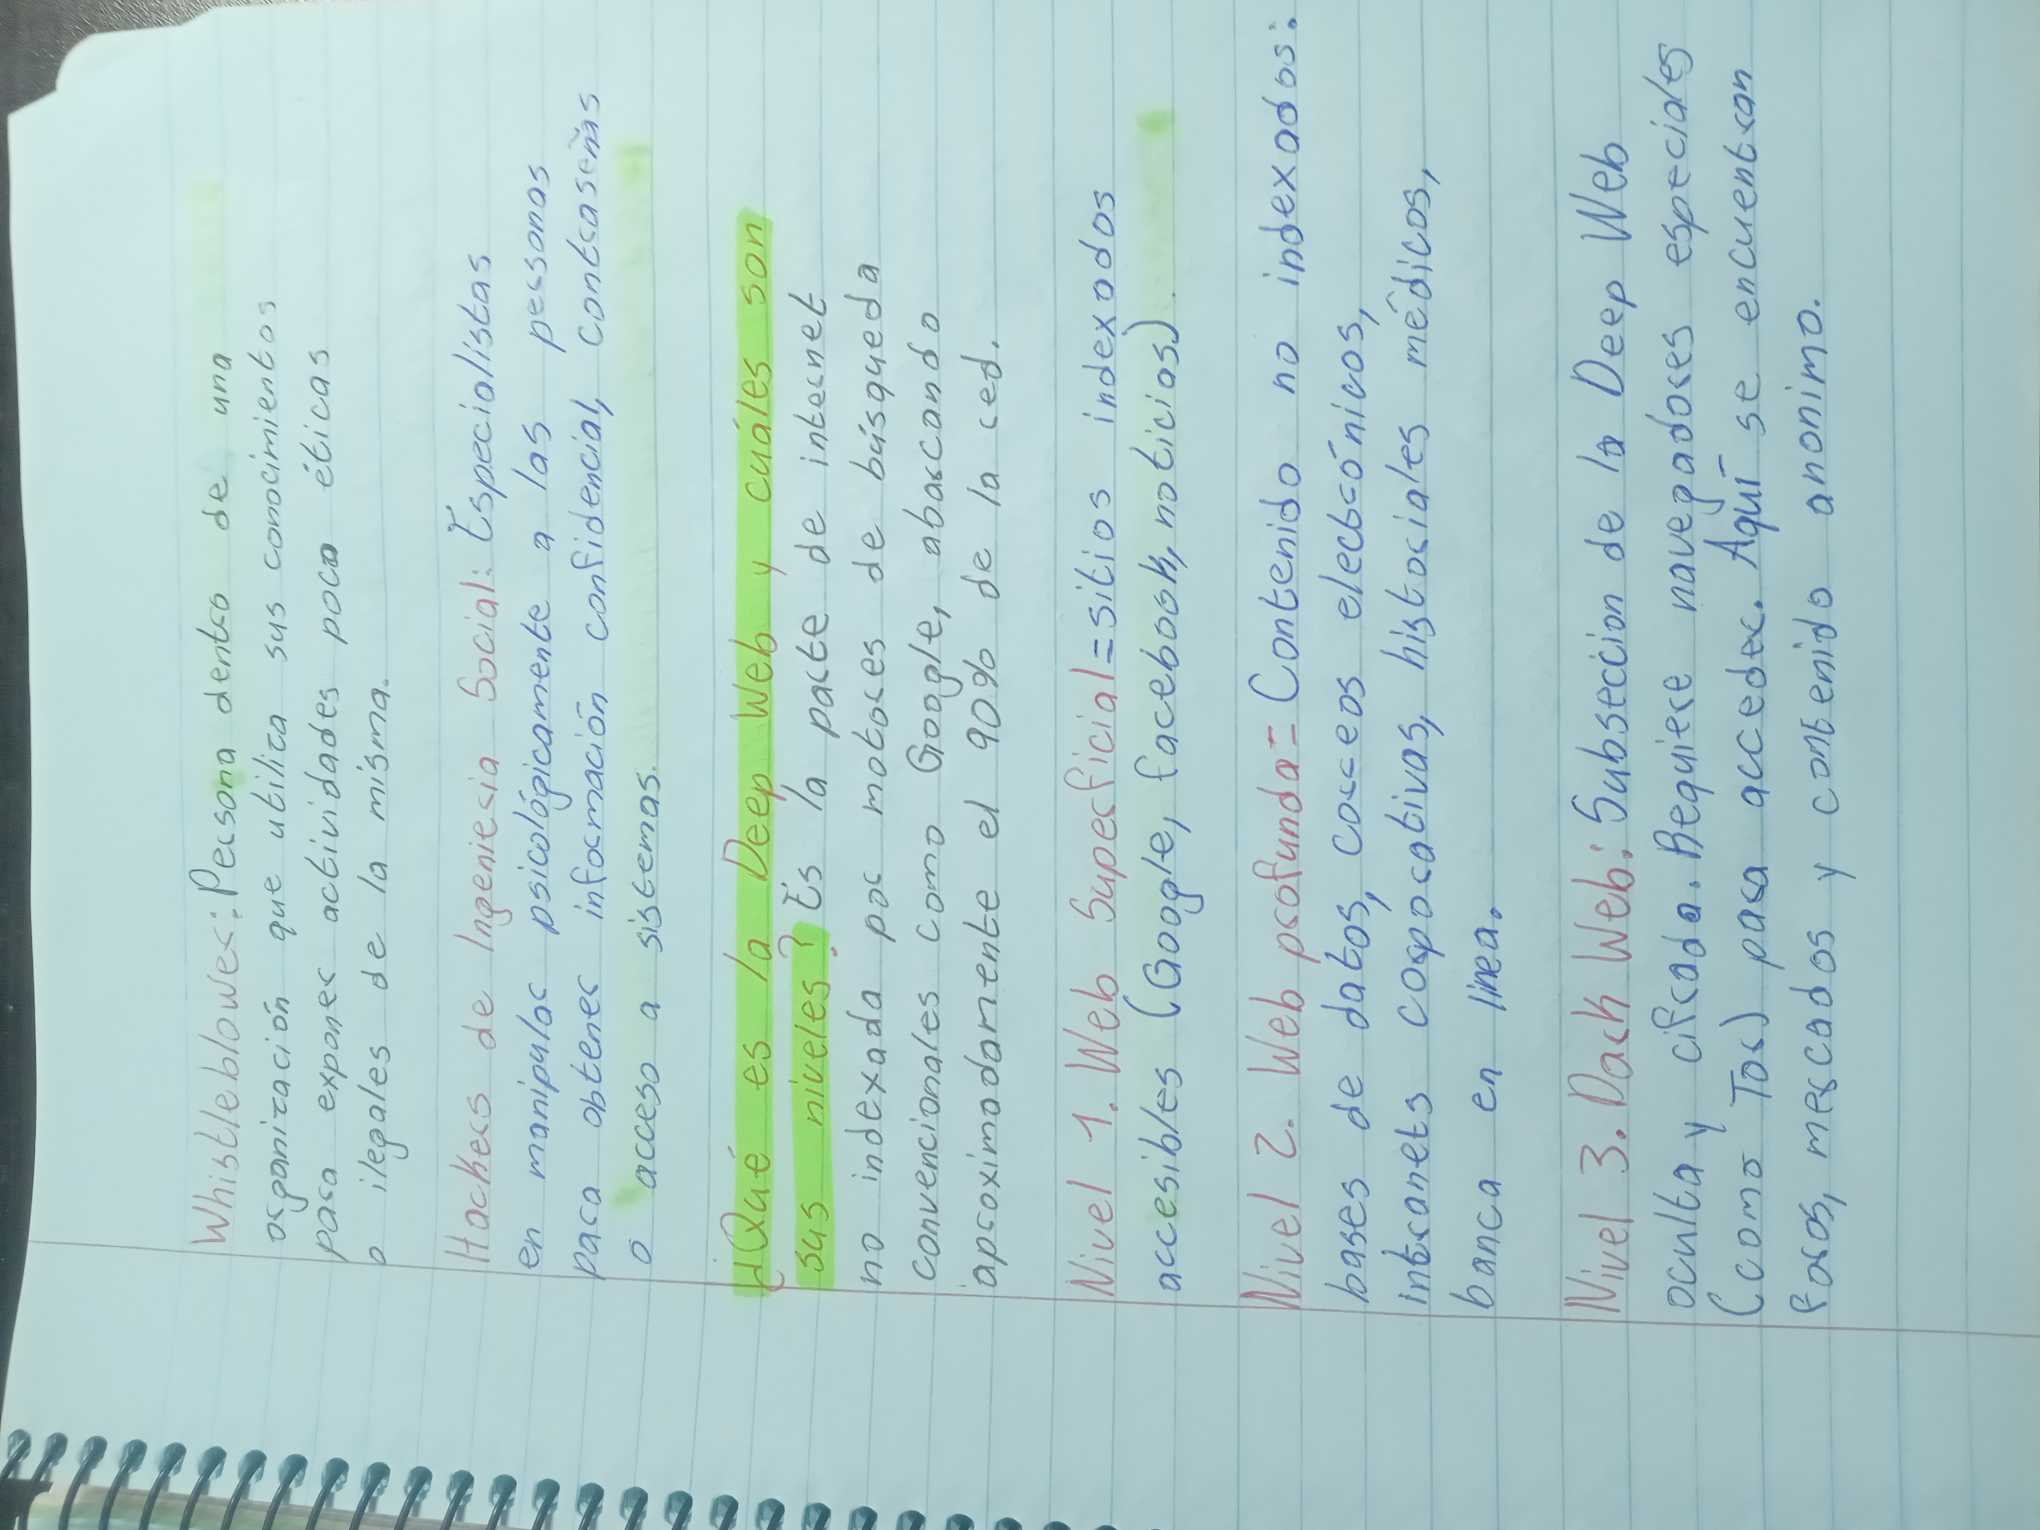 Whistleblower: Persona dentro de una
organización que utiliza sus conocimientos
para exponer actividades poco éticas
o ilegales de la misma.
Hackers de Ingenieria Social: Especialistas
en manipular psicológicamente a las personas
para obtener información confidencial, contraseñas
o acceso a sistemas.
¿Qué es la Deep Web y cuáles son
sus niveles? Es la parte de internet
no indexada por motores de búsqueda
convencionales como Google, abarcando
aproximadamente el 90% de la red.
Nivel 1. Web Superficial = sitios indexados
accesibles (Google, facebook, noticias)
Nivel 2. Web profunda = Contenido no indexados:
bases de datos, correos elecrónicos,
intranets corporativas, historiales médicos,
banca en línea.
Nivel 3. Dark Web: Subsección de la Deep Web
oculta y cifrada. Requiere navegadores especiales
(como Tor) para acceder. Aquí se encuentran
foros, mercados y contenido anonimo.